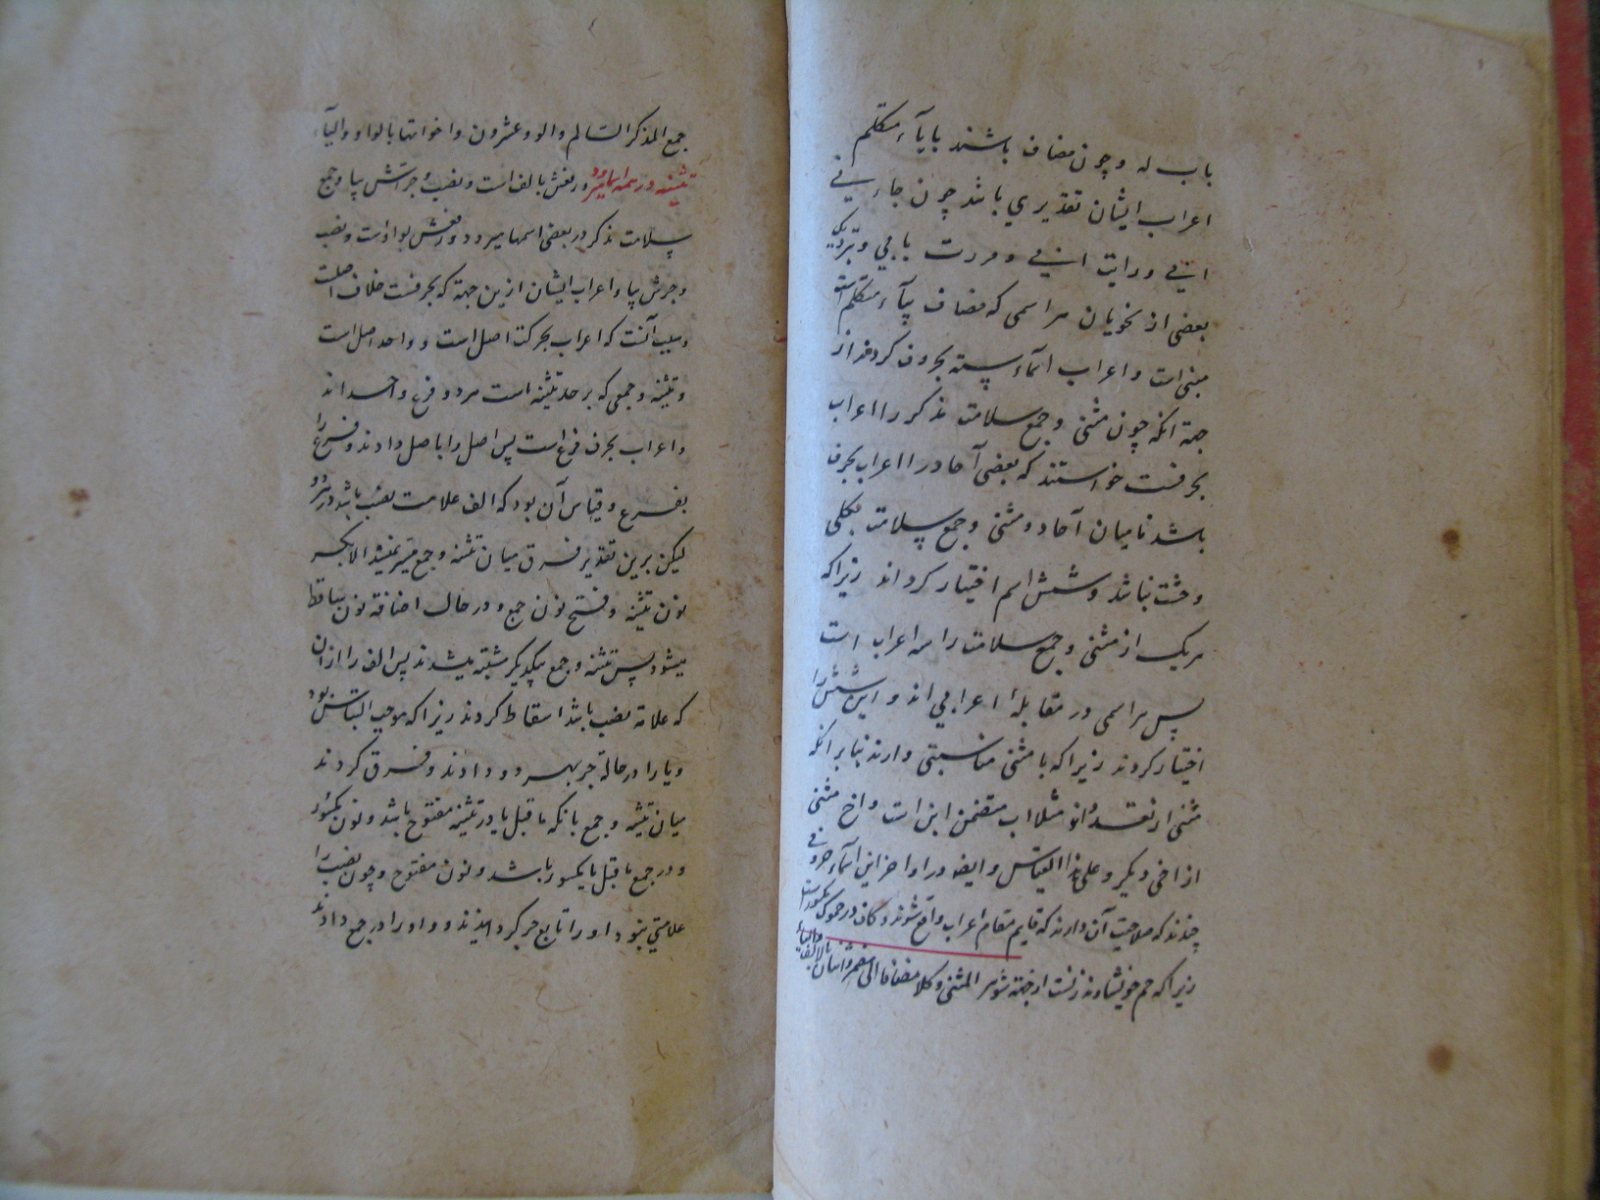 باب له و چون مضاف باشند بایآء متکلم
اعراب ایشان تقدیری باشد چون جاء نی
اخی و رایت اخی و مررت بابی و نزدیک
بعضی از نحویان هر اسمی که مضاف بیآء متکلم است
مبنی است و اعراب اسمآء سته بحروف کردند از
جهة انکه چون مثنی و جمع سلامت مذکر را اعراب
بحرفست خواستند که بعضی آحاد را اعراب بحرف
باشد تا میان آحاد و مثنی و جمع سلامت بکلی
وحشت نباشد و شش اسم اختیار کرده اند زیرا که
هر یک از مثنی و جمع سلامت را سه اعراب است
پس هر اسمی در مقابلهٔ اعرابی اند و این شش را
اختیار کردند زیرا که با مثنی مناسبتی دارند بنا بر انکه
مثنی از تعدد مثلا اب متضمن ابن است و اخ مثنی
از اخی دیکر و علی هذا القیاس و ایضه در اواخر این اسمآء حروفی
چندند که صلاحیت آن دارند که قایم مقام اعراب واقع شوند و کاف در حموک مکسورست
زیرا که حم خویشاوند زنست از جهة شوهر المثنی و کلا مضافا الی مضمر و اثنان بالالف والیاء
جمع المذکر السالم و الو و عشرون و اخواتها بالواو و الیآء
تثنیه در همه اسما میرود و رفعش بالف است و نصب و جرش بیا و جمع
سلامت مذکر در بعضی اسمها میرود و رفعش بواوست و نصب
و جرش بیا و اعراب ایشان ازین جهة که بحرفست خلاف اصلست
و سبب آنست که اعراب بحرکت اصل است و واحد اصل است
و تثنیه و جمعی که بر حد تثنیه است هر دو فرع واحد اند
و اعراب بحرف فرع است پس اصل را باصل دادند و فرع را
بفرع و قیاس آن بود که الف علامت نصب باشد در هر دو
لیکن برین تقدیر فرق میان تثنیه و جمع نمیشد الا بکسر
نون تثنیه و فتح نون جمع و در حال اضافة نون ساقط
میشود پس تثنیه و جمع بیکدیکر مشتبه میشدند پس الف را از ان
که علامة نصب باشد اسقاط کردند زیرا که موجب التباس بود
و یا را در حالة جر بهر دو دادند و فرق کردند
میان تثنیه و جمع بانکه ما قبل یا در تثنیه مفتوح باشد و نون مکسور
و در جمع ما قبل یا مکسور باشد و نون مفتوح و چون نصب را
علامتی نبود او را تابع جر کردانیدند و واو را در جمع دادند